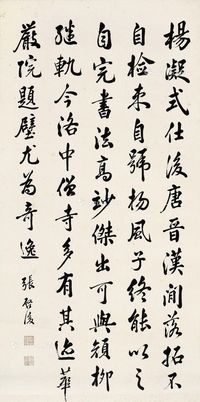 楊凝式仕後唐晉漢間落拓不
自檢束自號楊風子終能以之
自完書法高妙傑出可與顏柳
繼軌今洛中僧寺多有其迹華
嚴院題壁尤為奇逸
張啓後